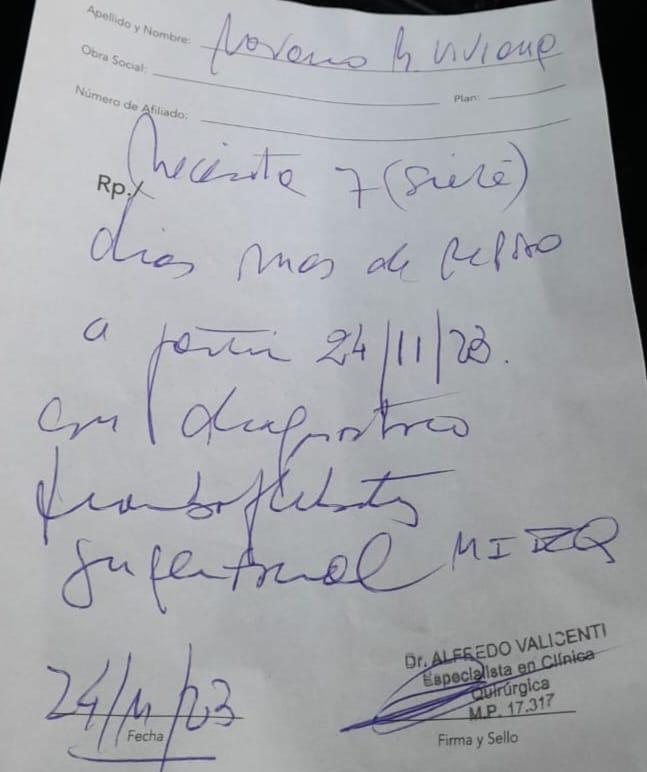 Apellido y Nombre: Moreno M Viviana
Obra Social:
Plan:
Número de Afiliado:
Rp./ Necesita 7 (siete)
dias mas de reposo
a partir 24/11/23.
con diagnostico
tromboflebitis
superficial MI IZQ
24/11/23
Fecha
Dr. ALFREDO VALICENTI
Especialista en Clínica
Quirúrgica
M.P. 17.317
Firma y Sello